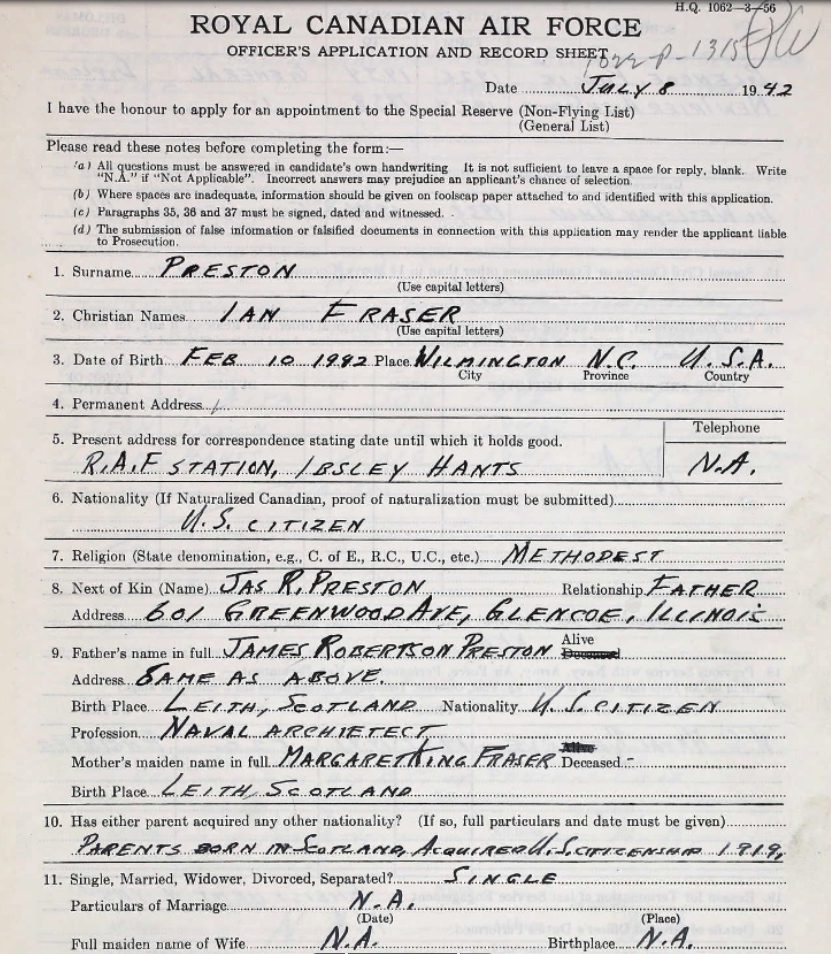 H.Q. 1062—3—56
ROYAL CANADIAN AIR FORCE
OFFICER'S APPLICATION AND RECORD SHEET
Date JULY 8 1942
I have the honour to apply for an appointment to the Special Reserve (Non-Flying List)
(General List)
Please read these notes before completing the form:—
(a) All questions must be answered in candidate's own handwriting It is not sufficient to leave a space for reply, blank. Write
"N.A." if "Not Applicable". Incorrect answers may prejudice an applicant's chance of selection.
(b) Where spaces are inadequate, information should be given on foolscap paper attached to and identified with this application.
(c) Paragraphs 35, 36 and 37 must be signed, dated and witnessed.
(d) The submission of false information or falsified documents in connection with this application may render the applicant liable
to Prosecution.
1. Surname PRESTON
(Use capital letters)
2. Christian Names IAN FRASER
(Use capital letters)
3. Date of Birth FEB 10 Place WILMINGTON N.C. U.S.A.
City Province Country
4. Permanent Address
5. Present address for correspondence stating date until which it holds good. Telephone
R.A.F STATION, IBSLEY HANTS N.A.
6. Nationality (If Naturalized Canadian, proof of naturalization must be submitted)
U.S. CITIZEN
7. Religion (State denomination, e.g., C. of E., R.C., U.C., etc.) METHODEST
8. Next of Kin (Name) JAS R. PRESTON Relationship FATHER
Address 601 GREENWOOD AVE, GLENCOE, ILLINOIS
9. Father's name in full JAMES ROBERTSON PRESTON Alive
Deceased
Address SAME AS ABOVE.
Birth Place LEITH, SCOTLAND Nationality U.S. CITIZEN
Profession NAVAL ARCHIETECT
Alive
Mother's maiden name in full MARGARET KING FRASER Deceased -
Birth Place LEITH, SCOTLAND
10. Has either parent acquired any other nationality? (If so, full particulars and date must be given)
PARENTS BORN IN SCOTLAND, ACQUIRED U.S. CITIZENSHIP 1919.
11. Single, Married, Widower, Divorced, Separated? SINGLE
Particulars of Marriage N.A.
(Date) (Place)
Full maiden name of Wife N.A. Birthplace N.A.